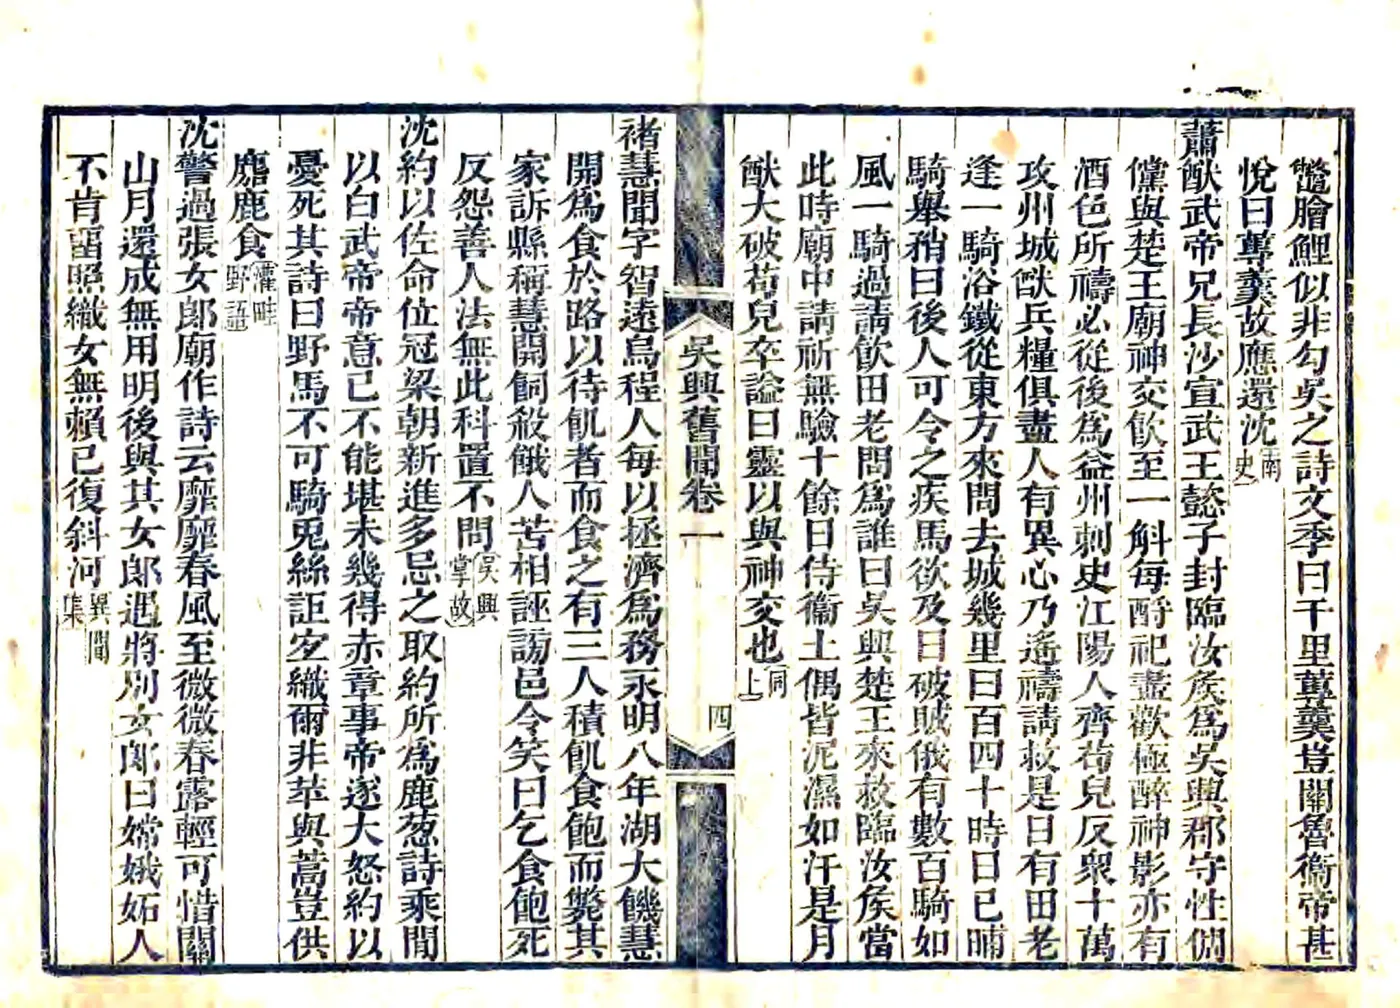 鼈膾鯉似非勾吳之詩文季曰千里蓴羹豈關魯衞帝甚
悅曰蓴羹故應還沈南史
蕭猷武帝兄長沙宣武王懿子封臨汝侯爲吳興郡守性倜
儻與楚王廟神交飮至一斛每酹祀盡歡極醉神影亦有
酒色所禱必從後爲益州刺史江陽人齊苟兒反衆十萬
攻州城猷兵糧俱盡人有異心乃遙禱請救是日有田老
逢一騎浴鐵從東方來問去城幾里曰百四十時日已晡
騎舉矟曰後人可令之疾馬欲及日破賊俄有數百騎如
風一騎過請飮田老問爲誰曰吳興楚王來救臨汝侯當
此時廟中請祈無驗十餘日侍衞土偶皆泥濕如汗是月
猷大破苟兒卒謚曰靈以與神交也同上
吳興舊聞卷一
四
褚慧聞字智遠烏程人每以拯濟爲務永明八年湖大饑慧
開爲食於路以待飢者而食之有三人積飢食飽而斃其
家訴縣稱慧開飼殺餓人苦相誣謗邑令笑曰乞食飽死
反怨善人法無此科置不問吳興掌故
沈約以佐命位冠梁朝新進多忌之取約所爲鹿葱詩乘閒
以白武帝帝意已不能堪未幾得赤章事帝遂大怒約以
憂死其詩曰野馬不可騎兎絲詎宐織爾非苹與蒿豈供
麏鹿食灌畦野語
沈警過張女郎廟作詩云靡靡春風至微微春露輕可惜關
山月還成無用明後與其女郎遇將別女郎曰嫦娥妬人
不肯畱照織女無賴已復斜河異聞集